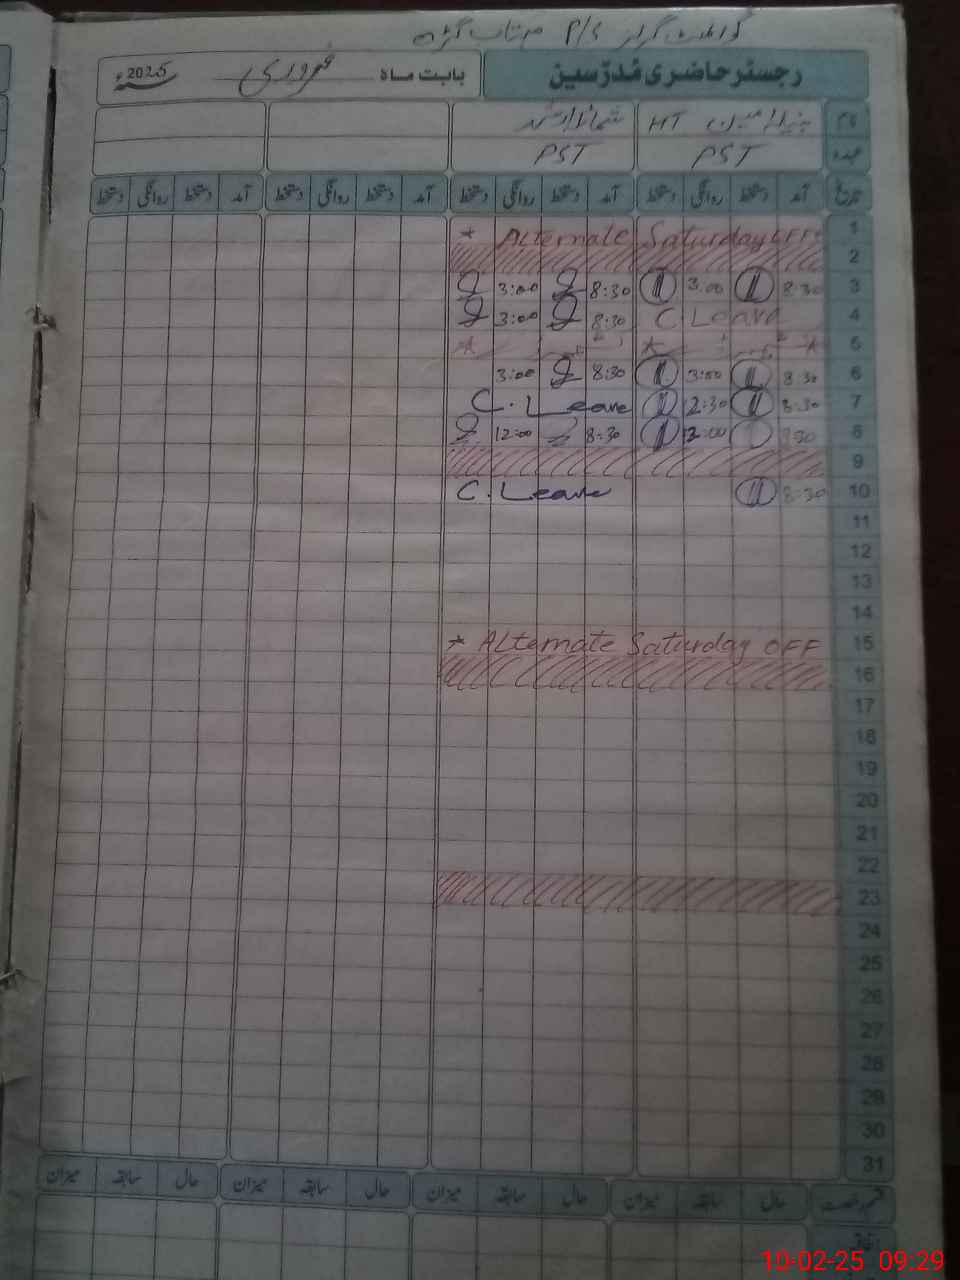 گورنمنٹ گرلز P/S
رجسٹر حاضری مُدرّسین بابت ماہ فروری 2025ء
نام HT
عہدہ PST PST
تاریخ آمد دستخط روانگی دستخط آمد دستخط روانگی دستخط آمد دستخط روانگی دستخط آمد دستخط روانگی دستخط
1 * Alternate Saturday OFF
2
3 8:30 3:00 8:30 3:00
4 C Leave 8:30 3:00
5 * * *
6 8:30 3:00 8:30 3:00
7 8:30 12:30 C. Leave
8 8:30 12:00 8:30 12:00
9
10 8:30 C. Leave
11
12
13
14
15 * Alternate Saturday OFF
16
17
18
19
20
21
22
23
24
25
26
27
28
29
30
31
قسم رخصت حال سابقہ میزان حال سابقہ میزان حال سابقہ میزان حال سابقہ میزان
10-02-25 09:29